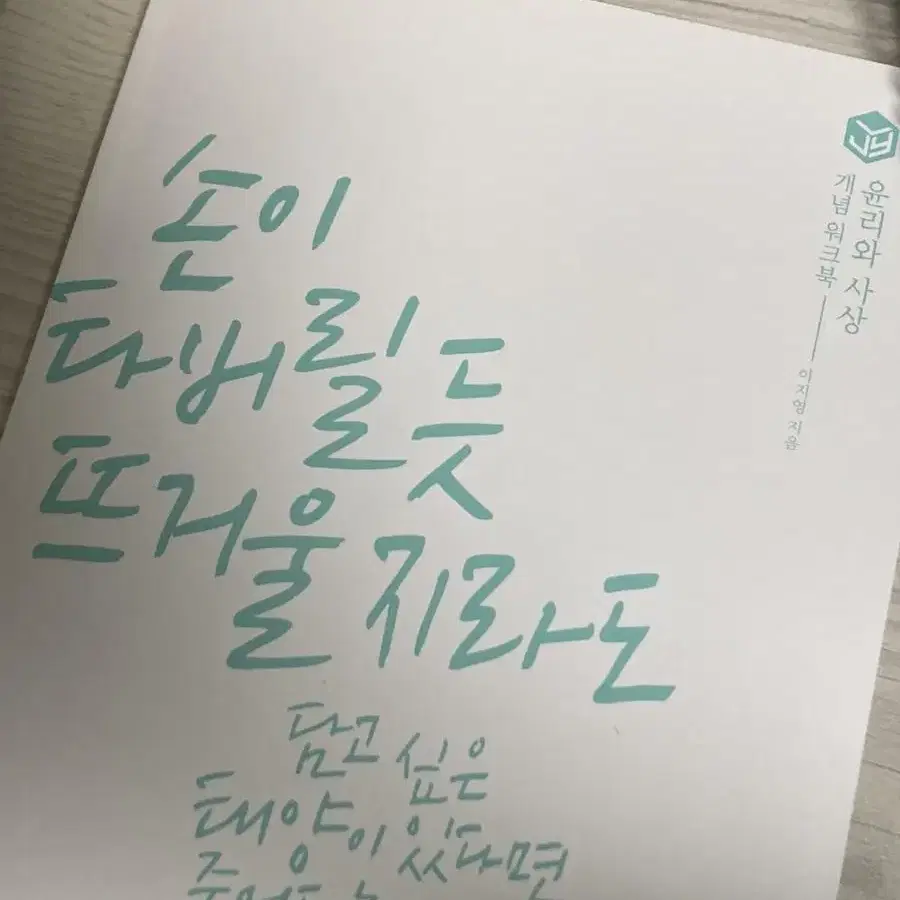 손이
타버릴 듯
뜨거울지라도
담고 싶은
태양이 있다면
윤리와 사상
개념 워크북
이지영 지음